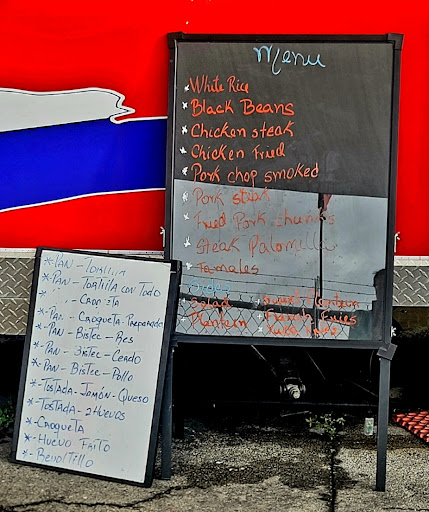 Menu
* White Rice
* Black Beans
* Chicken steak
* Chicken Fried
* Pork chop smoked
* Pork steak
* Fried Pork chunks
* Steak Palomilla
* Tamales
Sides
* Salad * Sweet Plantain
* Plantern * French Fries
* Yuka
*- PAN - TORTILLA
*- PAN - TORTILLA CON TODO
" " - CROQUETA
*- PAN - CROQUETA - Preparada
*- PAN - BISTEC - RES
*- PAN - BISTEC - CERDO
*- PAN - BISTEC - Pollo
*- TOSTADA - JAMÓN - QUESO
*- TOSTADA - 2 HUEVOS
*- CROQUETA
*- HUEVO FRITO
*- REVOLTILLO